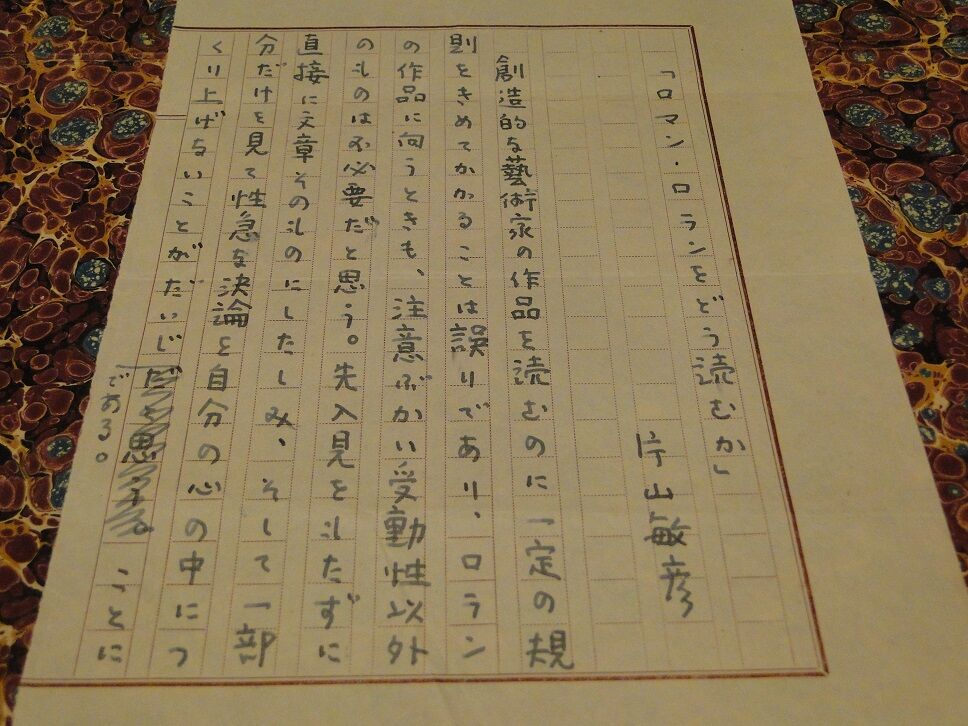 「ロマン・ロランをどう読むか」
片山敏彦
創造的な藝術家の作品を読むのに一定の規
則をきめてかかることは誤りであり、ロラン
の作品に向うときも、注意ぶかい受動性以外
のものは不必要だと思う。先入見をもたずに
直接に文章そのものにしたしみ、そして一部
分だけを見て性急な決論を自分の心の中につ
くり上げないことがだいじだと思う。ことに
である。